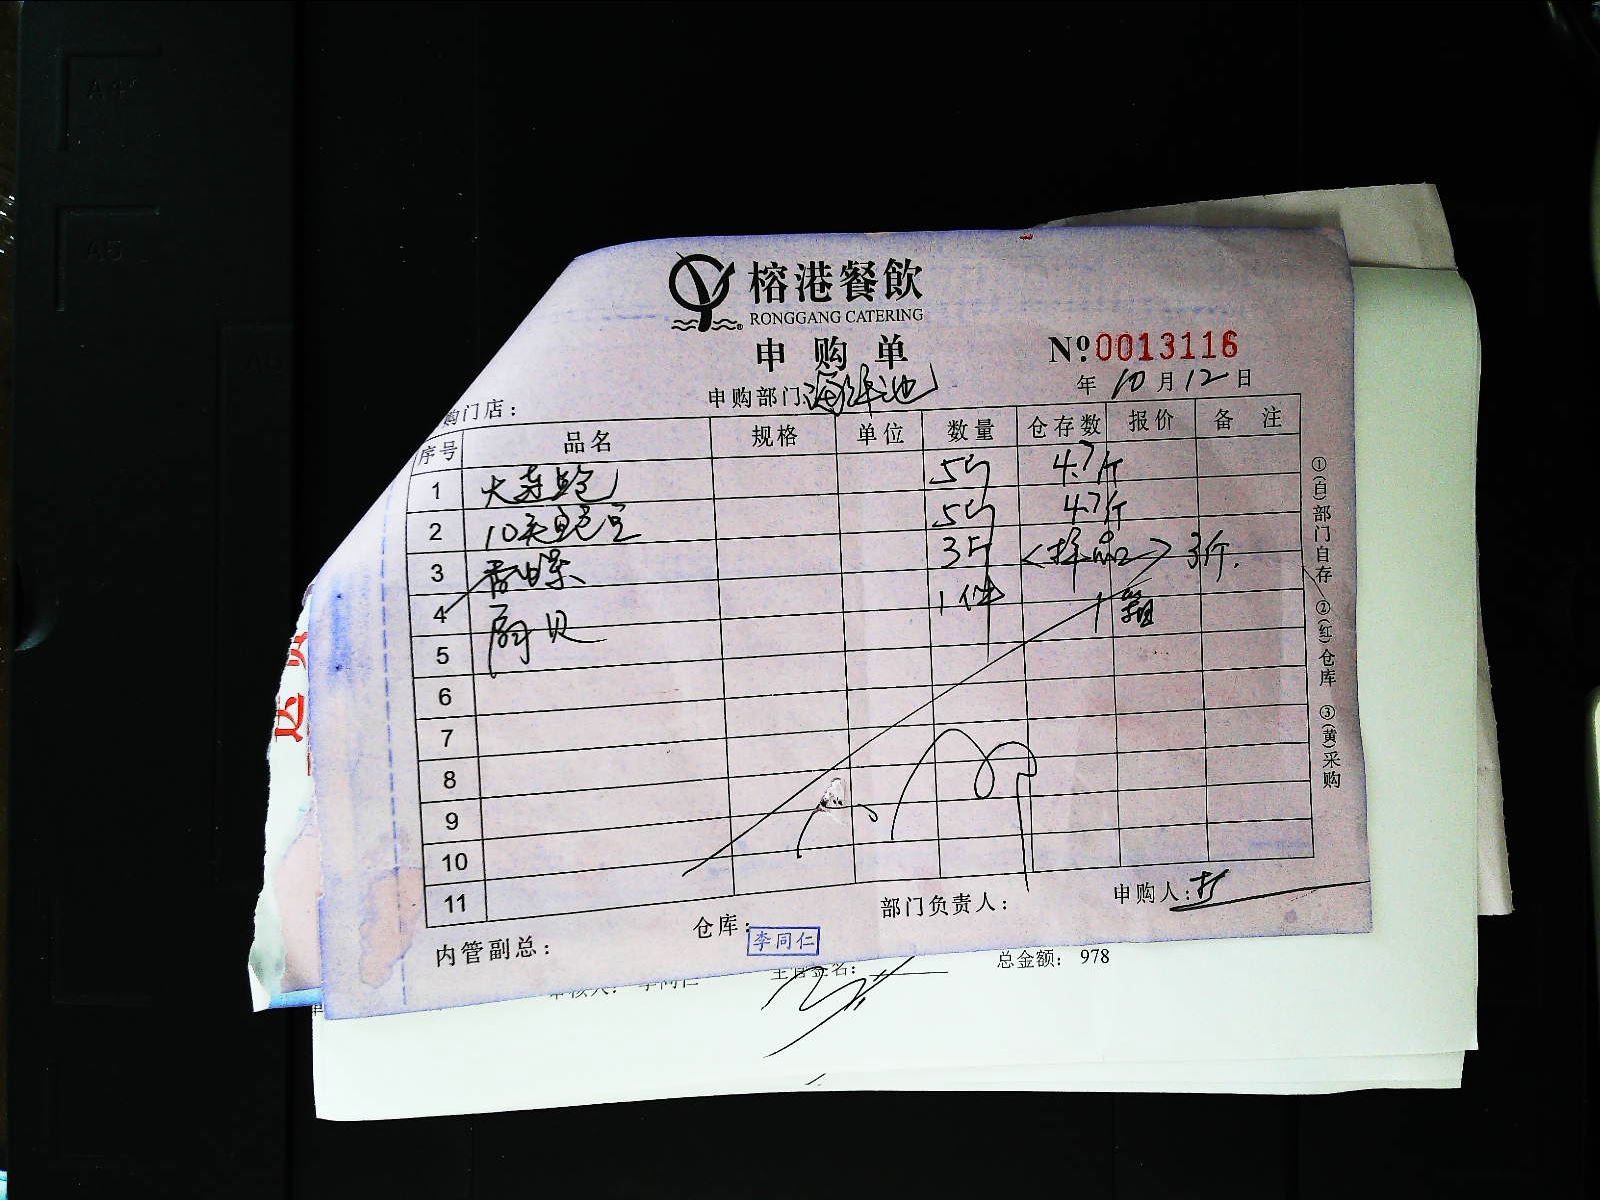 榕港餐飲
RONGGANG CATERING
申购单
No 0013116
购门店：
申购部门：海鲜池
年 10 月 12 日
序号 品名 规格 单位 数量 仓存数 报价 备注
1 大连鲍 5斤 4.7斤
2 10头鲍 5斤 4.7斤
3 香螺 3斤 <样品> 3斤.
4 贝 1件 1箱
5
6
7
8
9
10
11
内管副总：
仓库：
李同仁
部门负责人：
申购人：
①(白)部门自存 ②(红)仓库 ③(黄)采购
总金额： 978
A4
A5